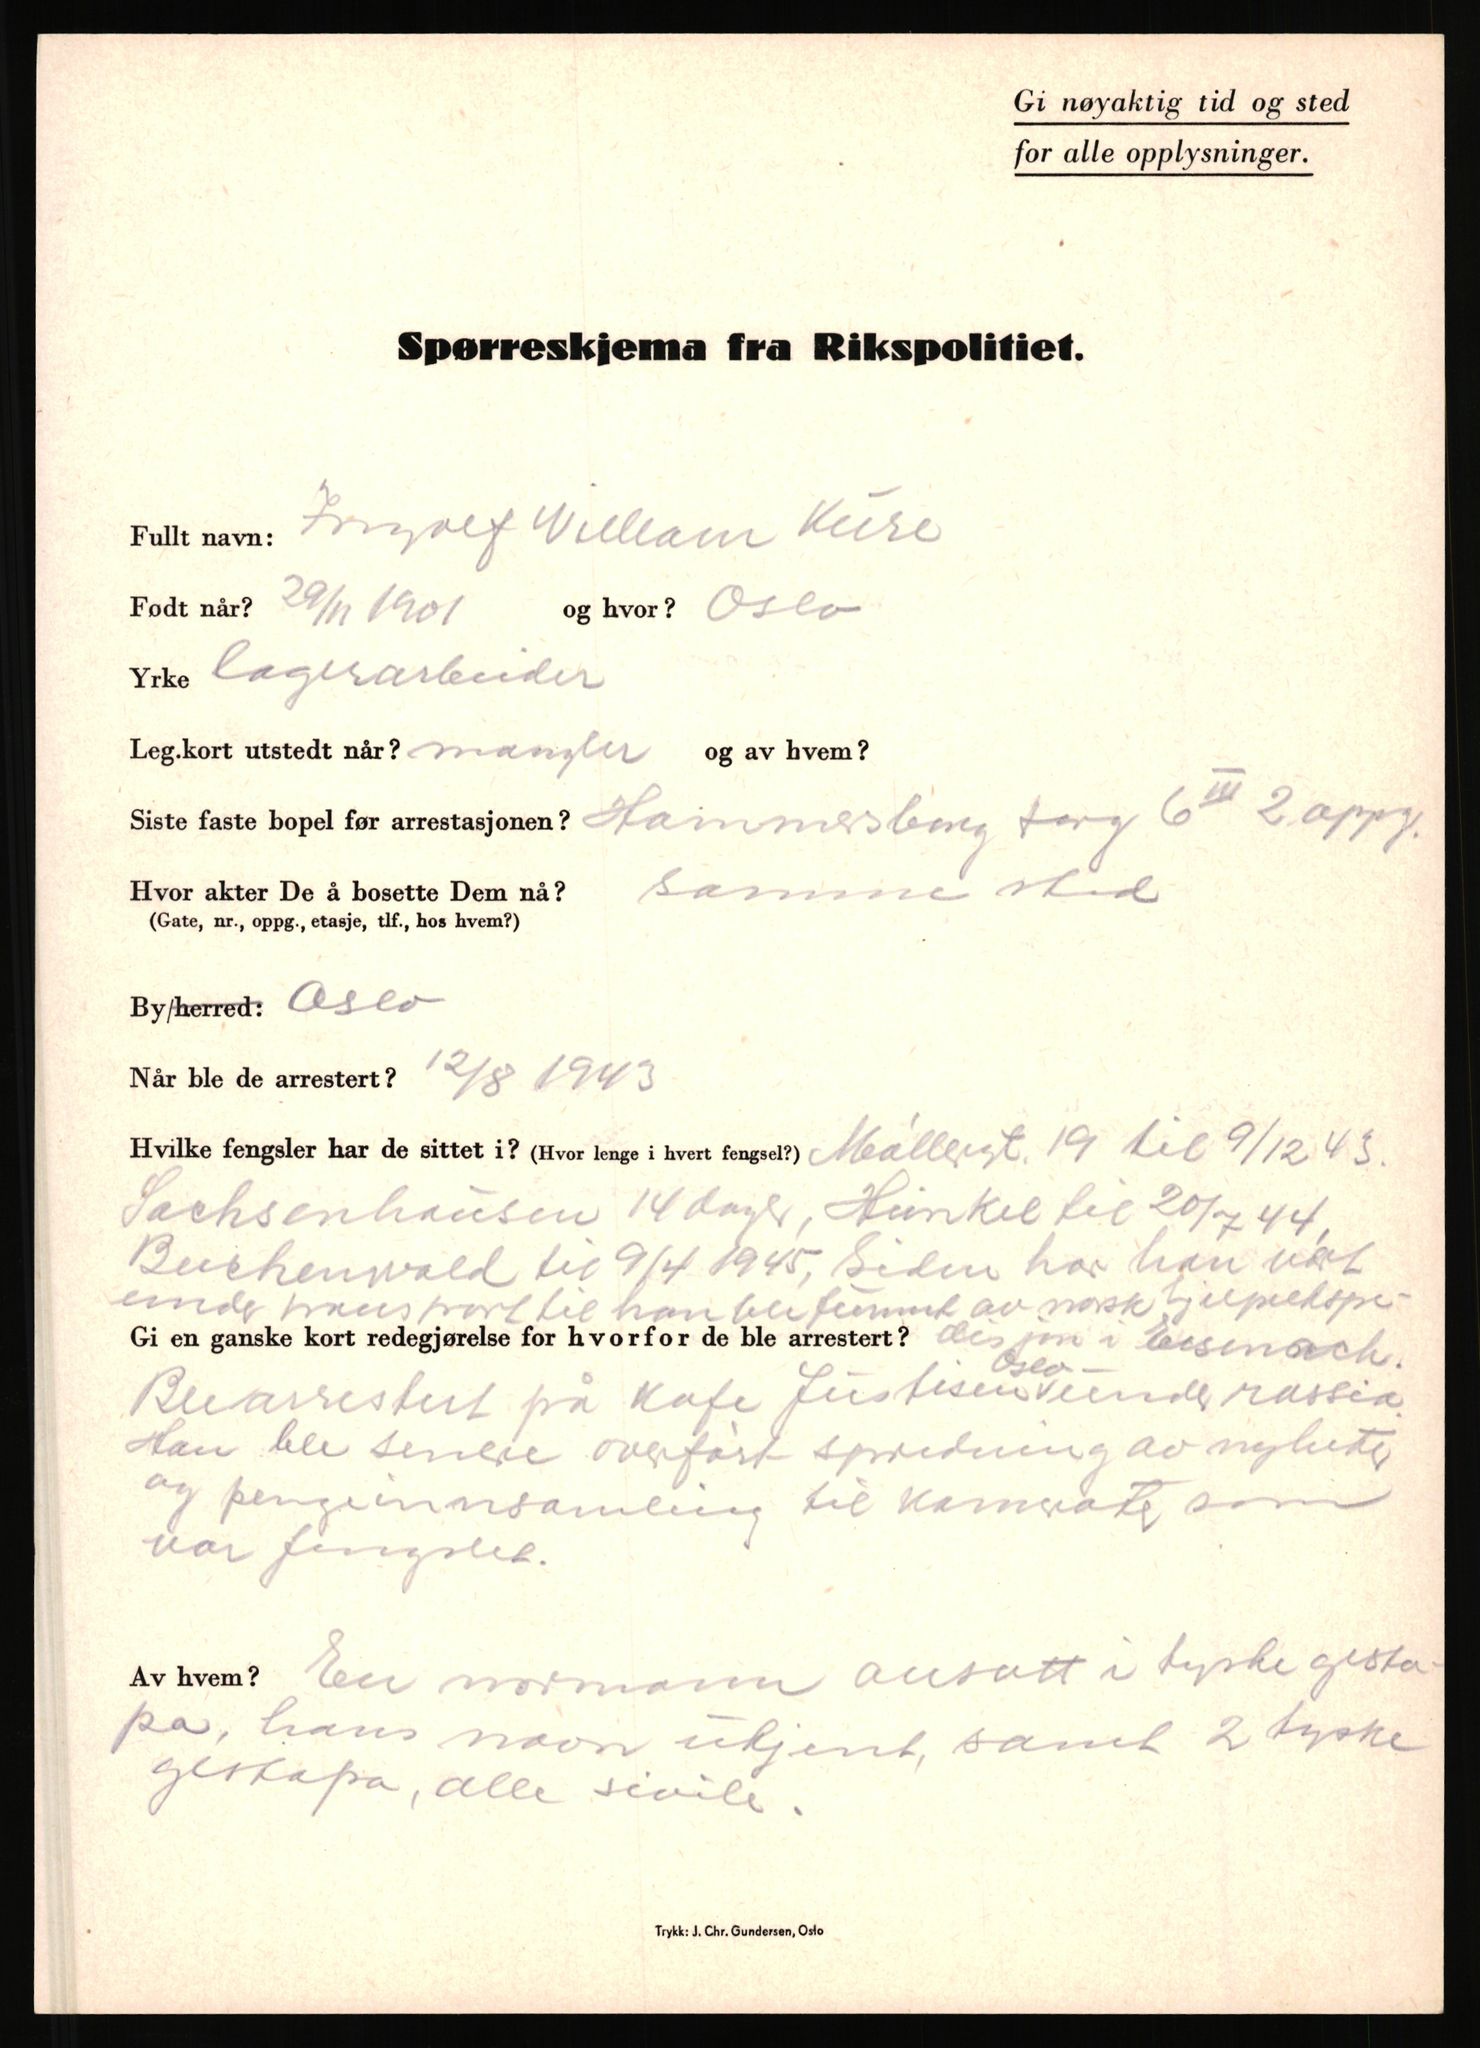 Gi nøyaktig tid og sted
for alle opplysninger.
Spørreskjema fra Rikspolitiet.
Fullt navn: Ingolf William Kure
Født når? 29/11 1901 og hvor? Oslo
Yrke lagerarbeider
Leg.kort utstedt når? mangler og av hvem?
Siste faste bopel før arrestasjonen? Hammersborg torg 6 III 2 oppg.
Hvor akter De å bosette Dem nå? samme sted
(Gate, nr., oppg., etasje, tlf., hos hvem?)
By/herred: Oslo
Når ble de arrestert? 12/8 1943
Hvilke fengsler har de sittet i? (Hvor lenge i hvert fengsel?) Møllergt. 19 til 9/12 43.
Sachsenhausen 14 dager, Heinkel til 20/7 44,
Buchenwald til 9/4 1945, Siden har han vært
under transport til han ble funnet av norsk hjelpeekspe-
Gi en ganske kort redegjørelse for hvorfor de ble arrestert? disjon i Eisenach.
Oslo
Ble arrestert på kafe Justisen under rassia.
Han ble senere overført spredning av nyheter
og pengeinnsamling til kamerater som
var fengslet.
Av hvem? En normann ansatt i tyske gesta-
po, hans navn ukjent, samt 2 tyske
gestapo, alle sivile.
Trykk: J. Chr. Gundersen, Oslo